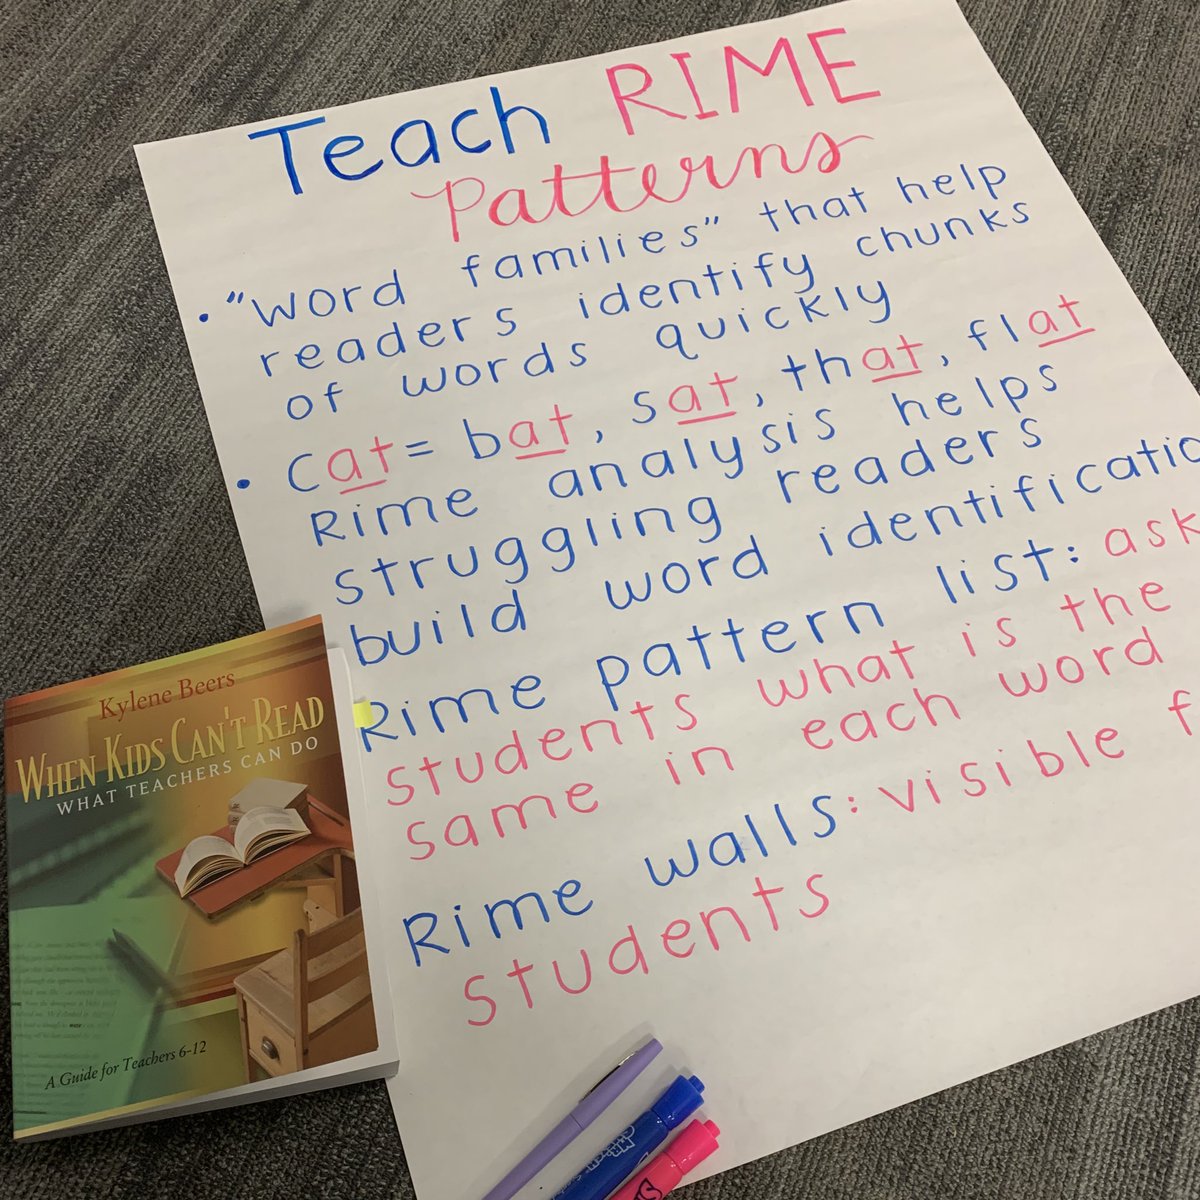 Teach RIME
Patterns
• "word families" that help
readers identify chunks
of words quickly
cat = bat, sat, that, flat
• Rime analysis helps
struggling readers
build word identificatio
Rime pattern list: ask
students what is the
same in each word
Rime walls: visible f
students
Kylene Beers
WHEN KIDS CAN'T READ
WHAT TEACHERS CAN DO
A Guide for Teachers 6-12